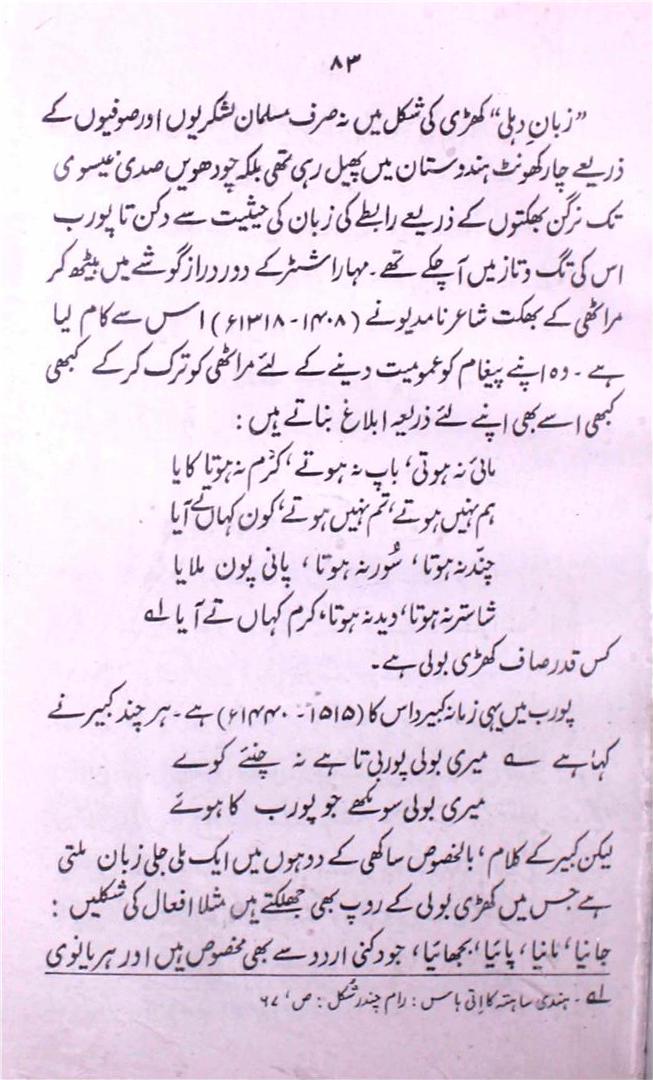 ۸۳
”زبانِ دہلی“ کھڑی کی شکل میں نہ صرف مسلمان لشکریوں اور صوفیوں کے
ذریعے چار کھونٹ ہندوستان میں پھیل رہی تھی بلکہ چودھویں صدی عیسوی
تک نرگن بھکتوں کے ذریعے رابطے کی زبان کی حیثیت سے دکن تا پورب
اس کی تگ و تاز میں آ چکے تھے۔ مہاراشٹر کے دور دراز گوشے میں بیٹھ کر
مراٹھی کے بھکت شاعر نامدیو نے (۱۴۰۸ - ۱۳۱۸ء) اس سے کام لیا
ہے۔ وہ اپنے پیغام کو عمومیت دینے کے لئے مراٹھی کو ترک کر کے کبھی
کبھی اسے بھی اپنے لئے ذریعہ ابلاغ بناتے ہیں :
مائی نہ ہوتی، باپ نہ ہوتے، کرْم نہ ہوتا کایا
ہم نہیں ہوتے، تم نہیں ہوتے، کون کہاں تے آیا
چنّد نہ ہوتا، سُور نہ ہوتا، پانی پون ملایا
شاستر نہ ہوتا، دید نہ ہوتا، کرم کہاں تے آیا لے
کس قدر صاف کھڑی بولی ہے۔
پورب میں یہی زمانہ کبیر داس کا (۱۵۱۵ - ۱۴۴۰ء) ہے۔ ہر چند کبیر نے
کہا ہے ے میری بولی پوربی تا ہے نہ چنئے کوے
میری بولی سو لکھے جو پورب کا ہوئے
لیکن کبیر کے کلام، بالخصوص ساکھی کے دوہوں میں ایک ملی جلی زبان ملتی
ہے جس میں کھڑی بولی کے روپ بھی جھلکتے ہیں مثلاً افعال کی شکلیں :
جانیا، مانیا، پائیا، بجھائیا، جو دکنی اردو سے بھی مخصوص ہیں اور ہریانوی
لے - ہندی ساہتہ کا اِتی ہاس : رام چندر شُکل : ص، ۶۷